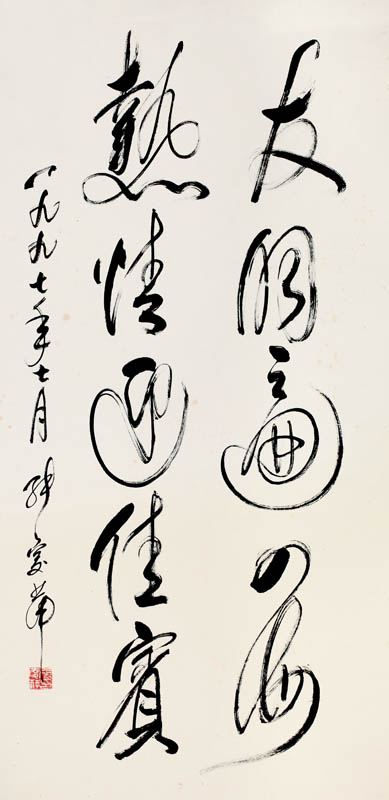 友朋遍四海
熱情迎佳賓
一九九七年七月